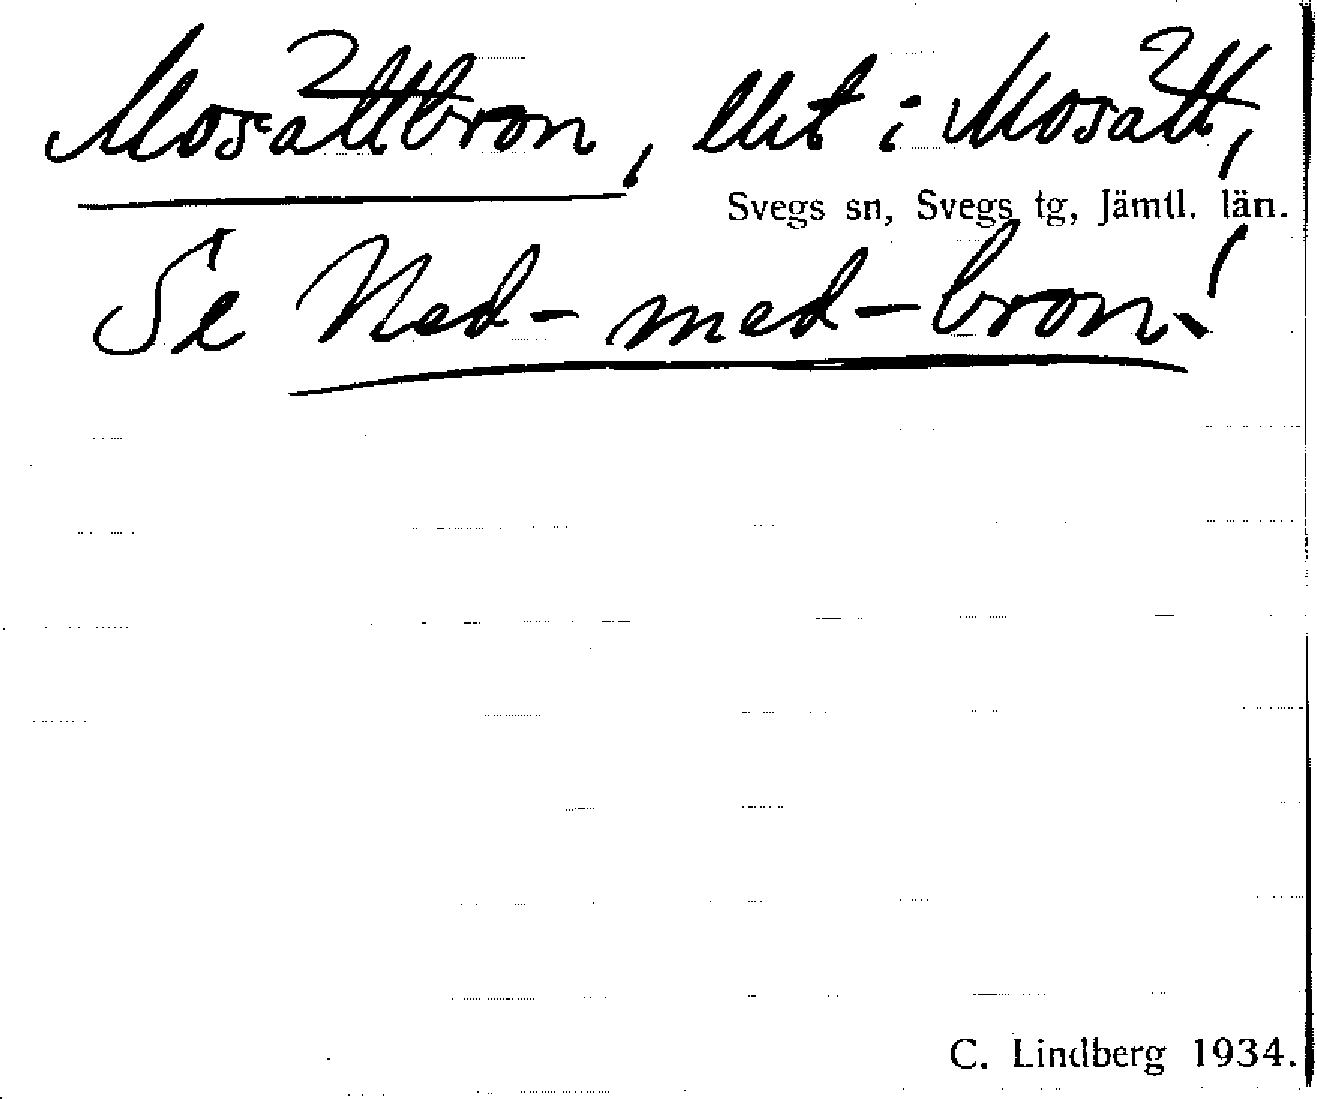 Mosättbron, utet i Mosätt,
Svegs sn, Svegs tg, Jämtl. län.
Se Ned-med-bron!
C. Lindberg 1934.